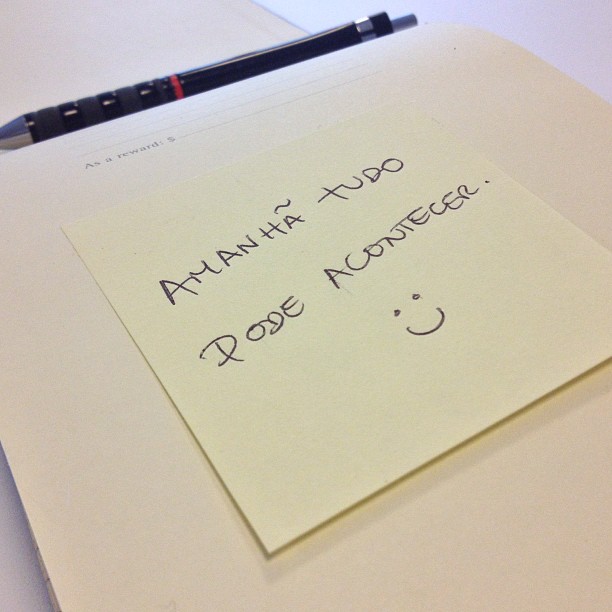 As a reward: $
AMANHÃ TUDO
PODE ACONTECER.